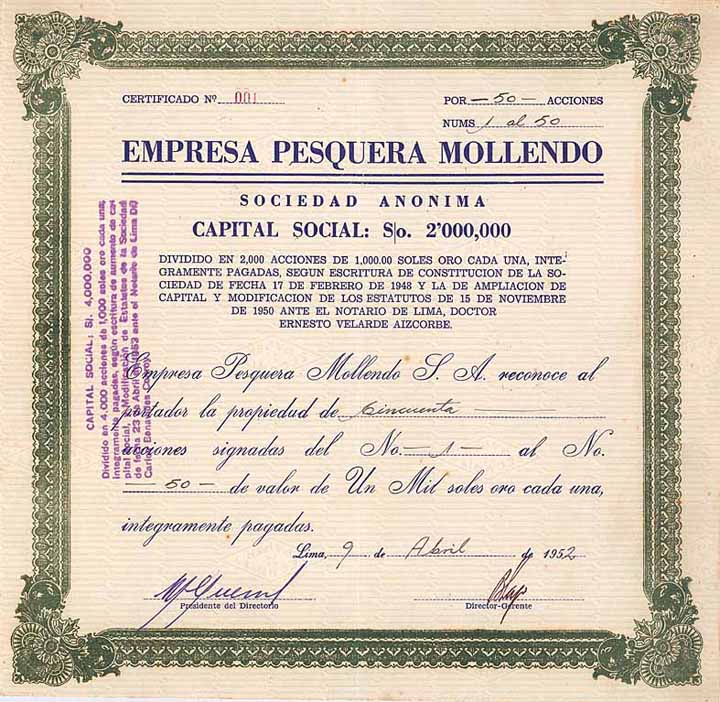 CERTIFICADO Nº 001
POR — 50 — ACCIONES
NUMS 1 al 50
EMPRESA PESQUERA MOLLENDO
SOCIEDAD ANONIMA
CAPITAL SOCIAL: S/o. 2'000,000
DIVIDIDO EN 2,000 ACCIONES DE 1,000.00 SOLES ORO CADA UNA, INTE-
GRAMENTE PAGADAS, SEGUN ESCRITURA DE CONSTITUCION DE LA SO-
CIEDAD DE FECHA 17 DE FEBRERO DE 1948 Y LA DE AMPLIACION DE
CAPITAL Y MODIFICACION DE LOS ESTATUTOS DE 15 DE NOVIEMBRE
DE 1950 ANTE EL NOTARIO DE LIMA, DOCTOR
ERNESTO VELARDE AIZCORBE.
Empresa Pesquera Mollendo S. A. reconoce al
portador la propiedad de Cincuenta —
acciones signadas del No. — 1 — al No.
— 50 — de valor de Un Mil soles oro cada una,
integramente pagadas.
Lima, 9 de Abril de 1952
Presidente del Directorio
Director-Gerente
CAPITAL SOCIAL: S/. 4,000,000
Dividido en 4,000 acciones de 1,000 soles oro cada una,
integramente pagadas, según escritura de aumento de ca-
pital social, y Modificación de Estatutos de la Sociedad
de fecha 23 de Abril 1953 ante el Notario de Lima Dr.
Carlos